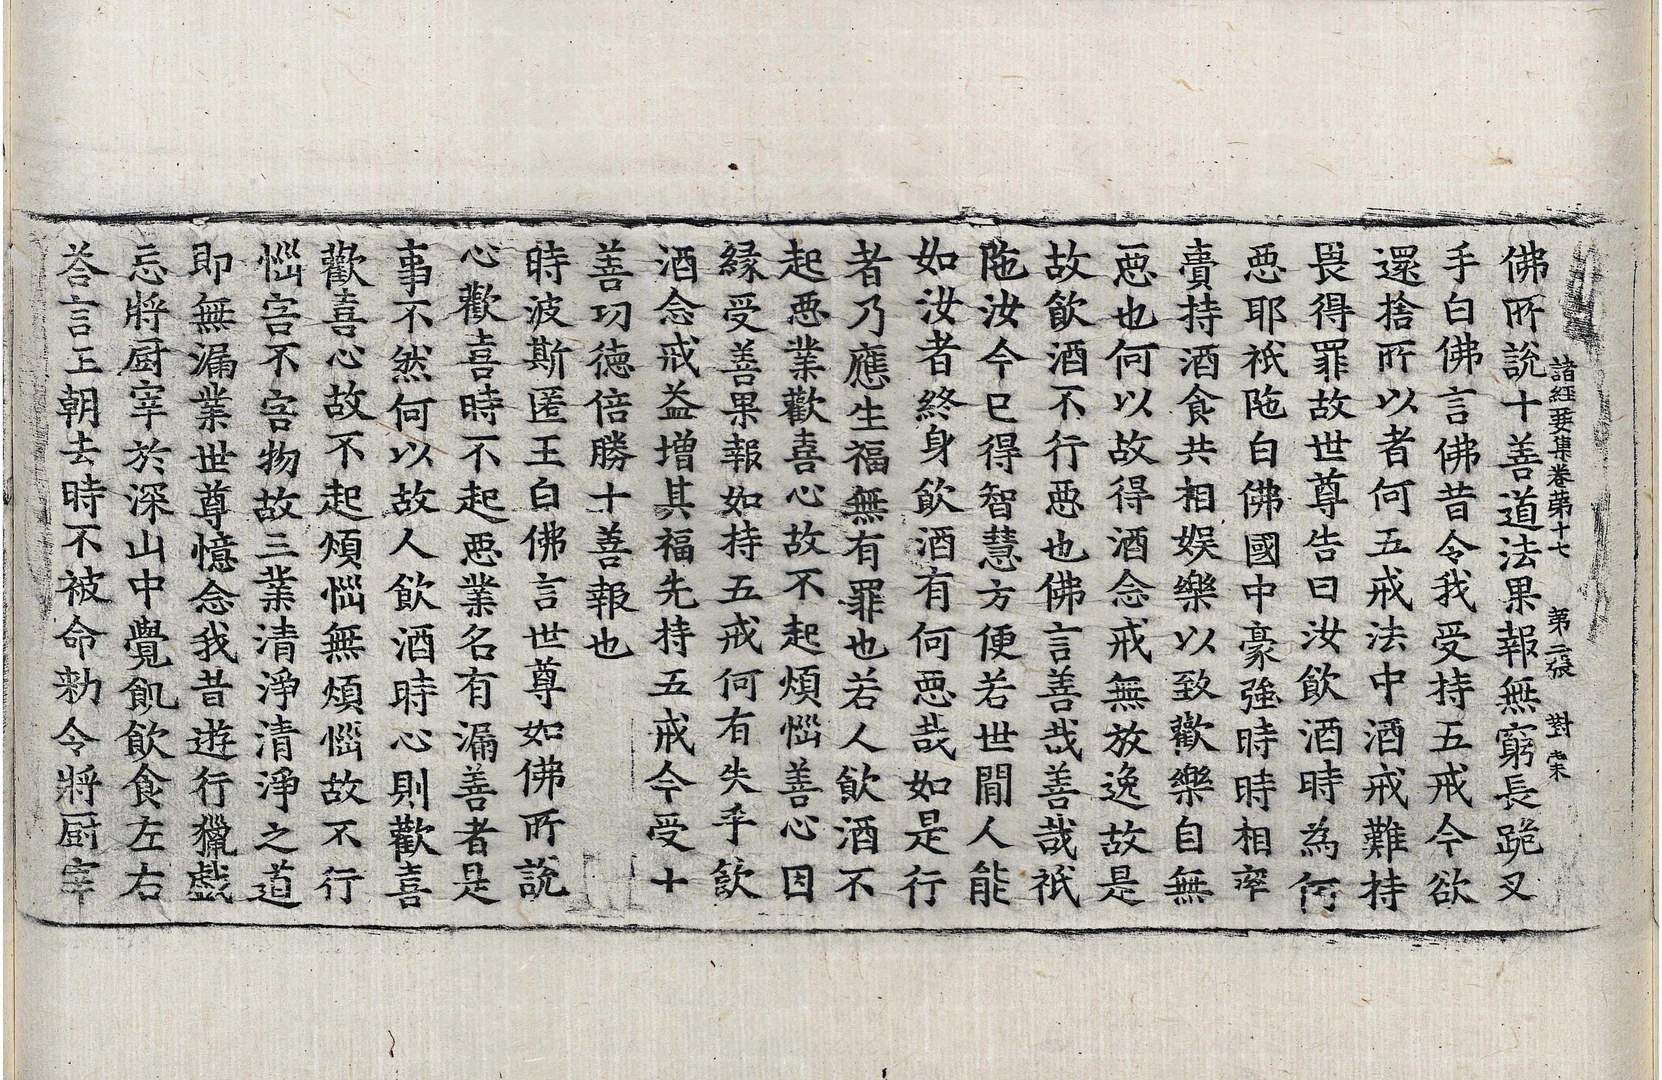 諸經要集卷苐十七 苐二張 對
佛所說十善道法果報無窮長跪叉
手白佛言佛昔令我受持五戒今欲
還捨所以者何五戒法中酒戒難持
畏得罪故世尊告曰汝飲酒時為何
惡耶祇陁白佛國中豪強時時相率
賷持酒食共相娛樂以致歡樂自無
惡也何以故得酒念戒無放逸故是
故飲酒不行惡也佛言善哉善哉祇
陁汝今已得智慧方便若世間人能
如汝者終身飲酒有何惡哉如是行
者乃應生福無有罪也若人飲酒不
起惡業歡喜心故不起煩惱善心因
緣受善果報如持五戒何有失乎飲
酒念戒益增其福先持五戒今受十
善功德倍勝十善報也
時波斯匿王白佛言世尊如佛所說
心歡喜時不起惡業名有漏善者是
事不然何以故人飲酒時心則歡喜
歡喜心故不起煩惱無煩惱故不行
惱害不害物故三業清淨清淨之道
即無漏業世尊憶念我昔遊行獵戲
忘將厨宰於深山中覺飢飲食左右
荅言王朝去時不被命勑令將厨宰